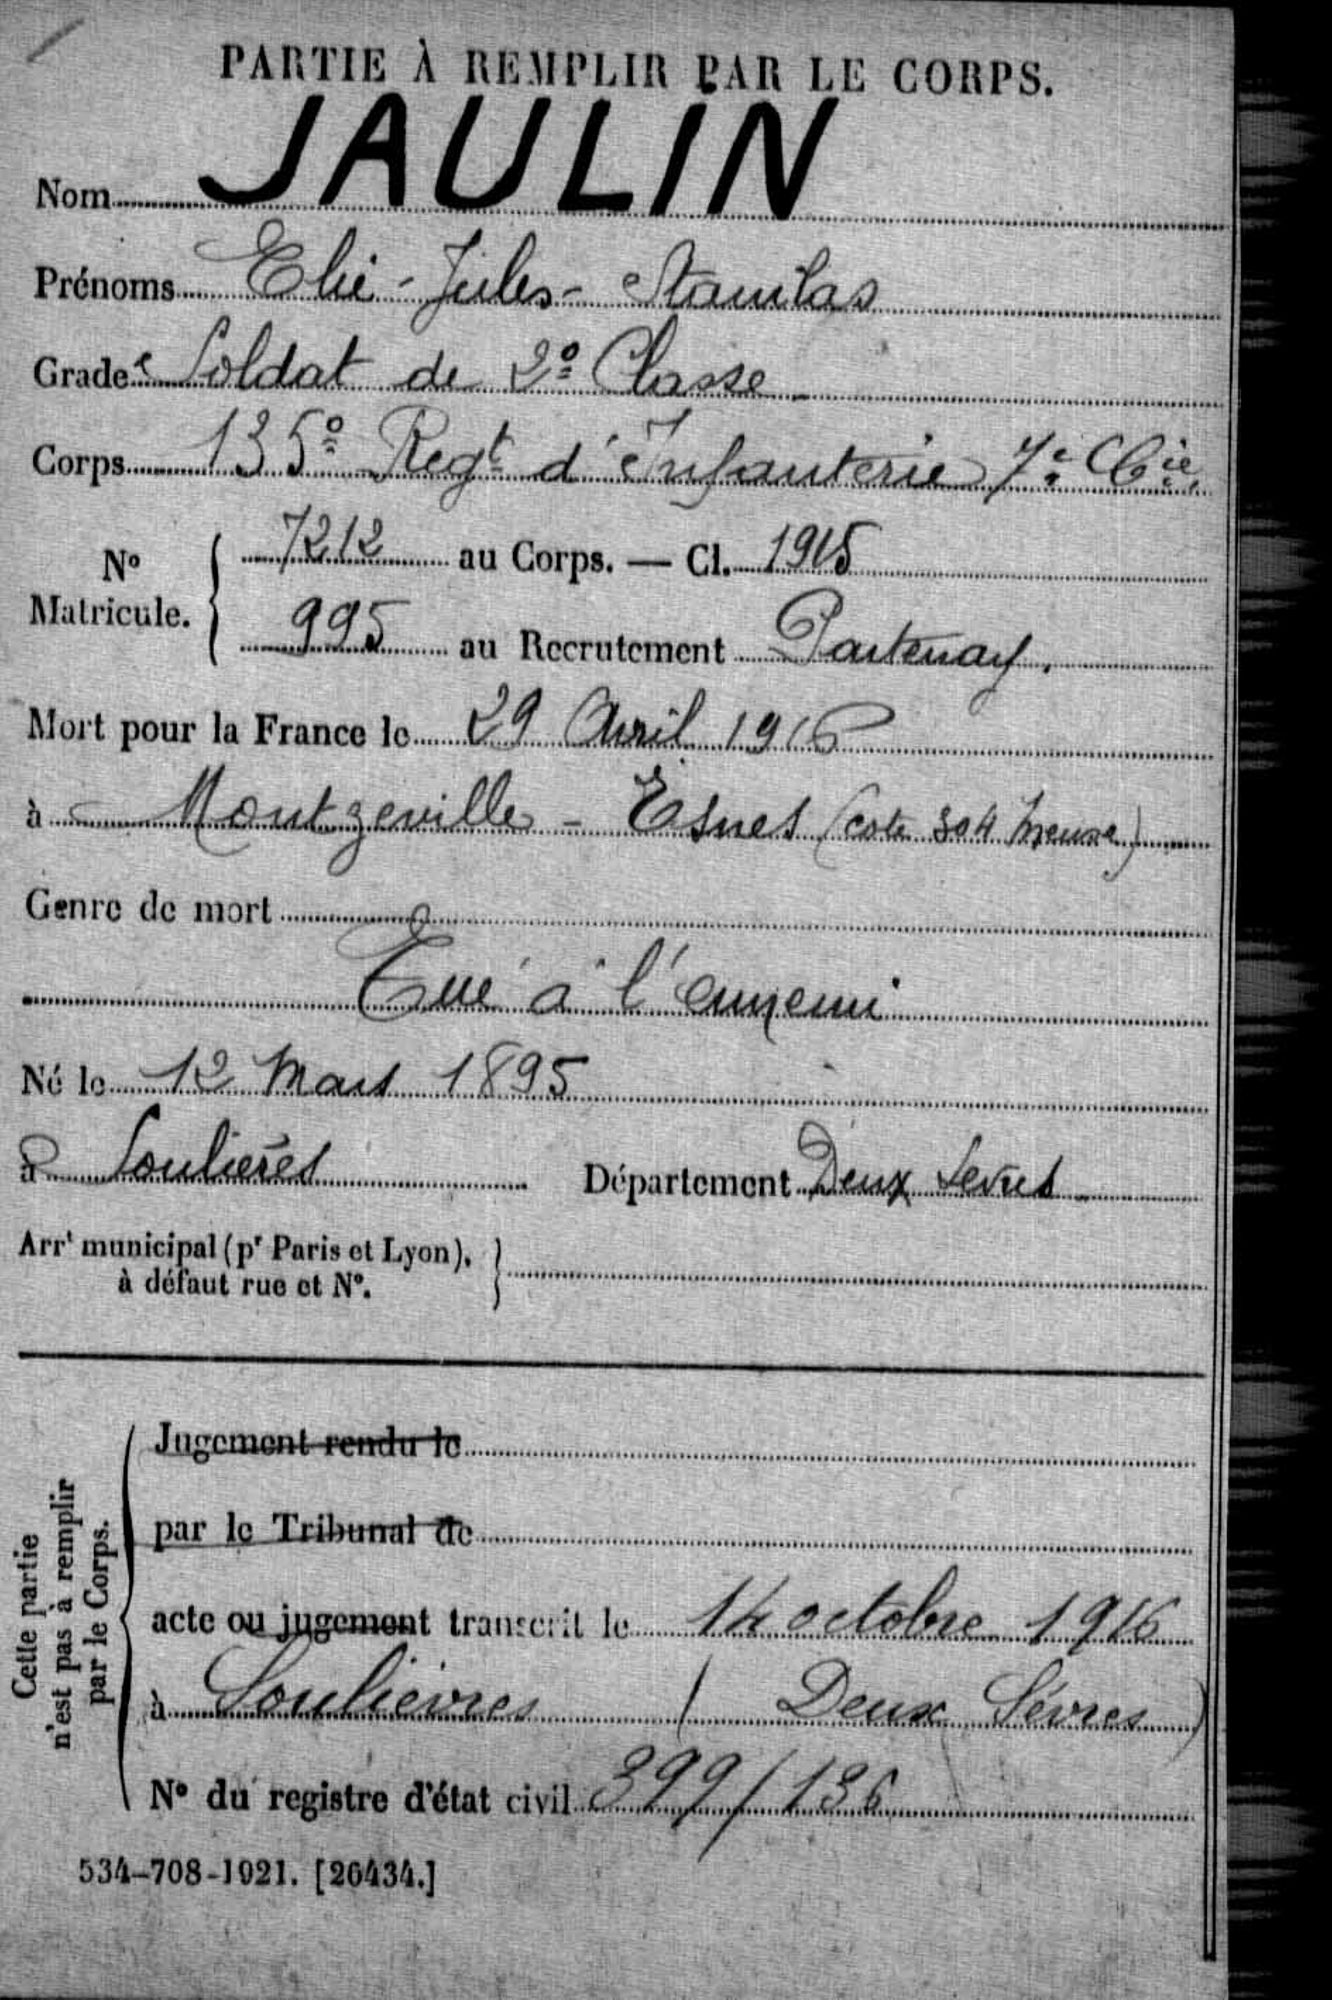 PARTIE À REMPLIR PAR LE CORPS.
Nom JAULIN
Prénoms Elie - Jules - Stanilas
Grade Soldat de 2e Classe
Corps 135e Regt d'Infanterie 7e Cie
No Matricule. 7212 au Corps. — Cl. 1915
995 au Recrutement Partenay.
Mort pour la France le 29 Avril 1916
à Montzeville - Esnes (cote 304 Meuse)
Genre de mort
Tué à l'ennemi
Né le 12 Mars 1895
à Soulières Département Deux Sevres
Arrt municipal (pr Paris et Lyon),
à défaut rue et No.
Cette partie
n'est pas à remplir
par le Corps.
Jugement rendu le
par le Tribunal de
acte ou jugement transcrit le 14 octobre 1916
à Soulièvres (Deux Sèvres)
No du registre d'état civil 399/136
534-708-1921. [26434.]